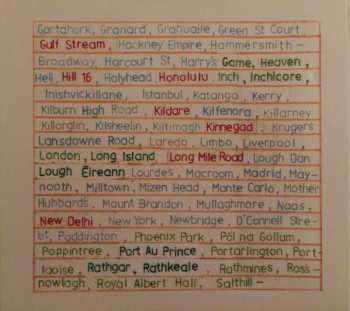 Gortahork, Granard, Granuaile, Green St Court,
Gulf Stream, Hackney Empire, Hammersmith –
Broadway, Harcourt St, Harry's Game, Heaven,
Hell, Hill 16, Holyhead Honolulu, Inch, Inchicore,
Inishvickillane, Istanbul, Katanga, Kerry,
Kilburn High Road, Kildare, Kilfenora, Killarney
Killorglin, Kilsheelin, Kiltimagh Kinnegad, Krugers
Lansdowne Road, Laredo, Limbo, Liverpool,
London, Long Island, Long Mile Road, Lough Dan
Lough Éireann Lourdes, Macroom, Madrid, May-
nooth, Milltown, Mizen Head, Monte Carlo, Mother
Hubbards, Mount Brandon, Mullaghmore, Naas,
New Delhi, New York, Newbridge, O'Connell Stre-
et, Paddington, Phoenix Park, Pól na Gollum,
Poppintree, Port Au Prince, Portarlington, Port-
laoise, Rathgar, Rathkeale, Rathmines, Ross-
nowlagh, Royal Albert Hall, Salthill –